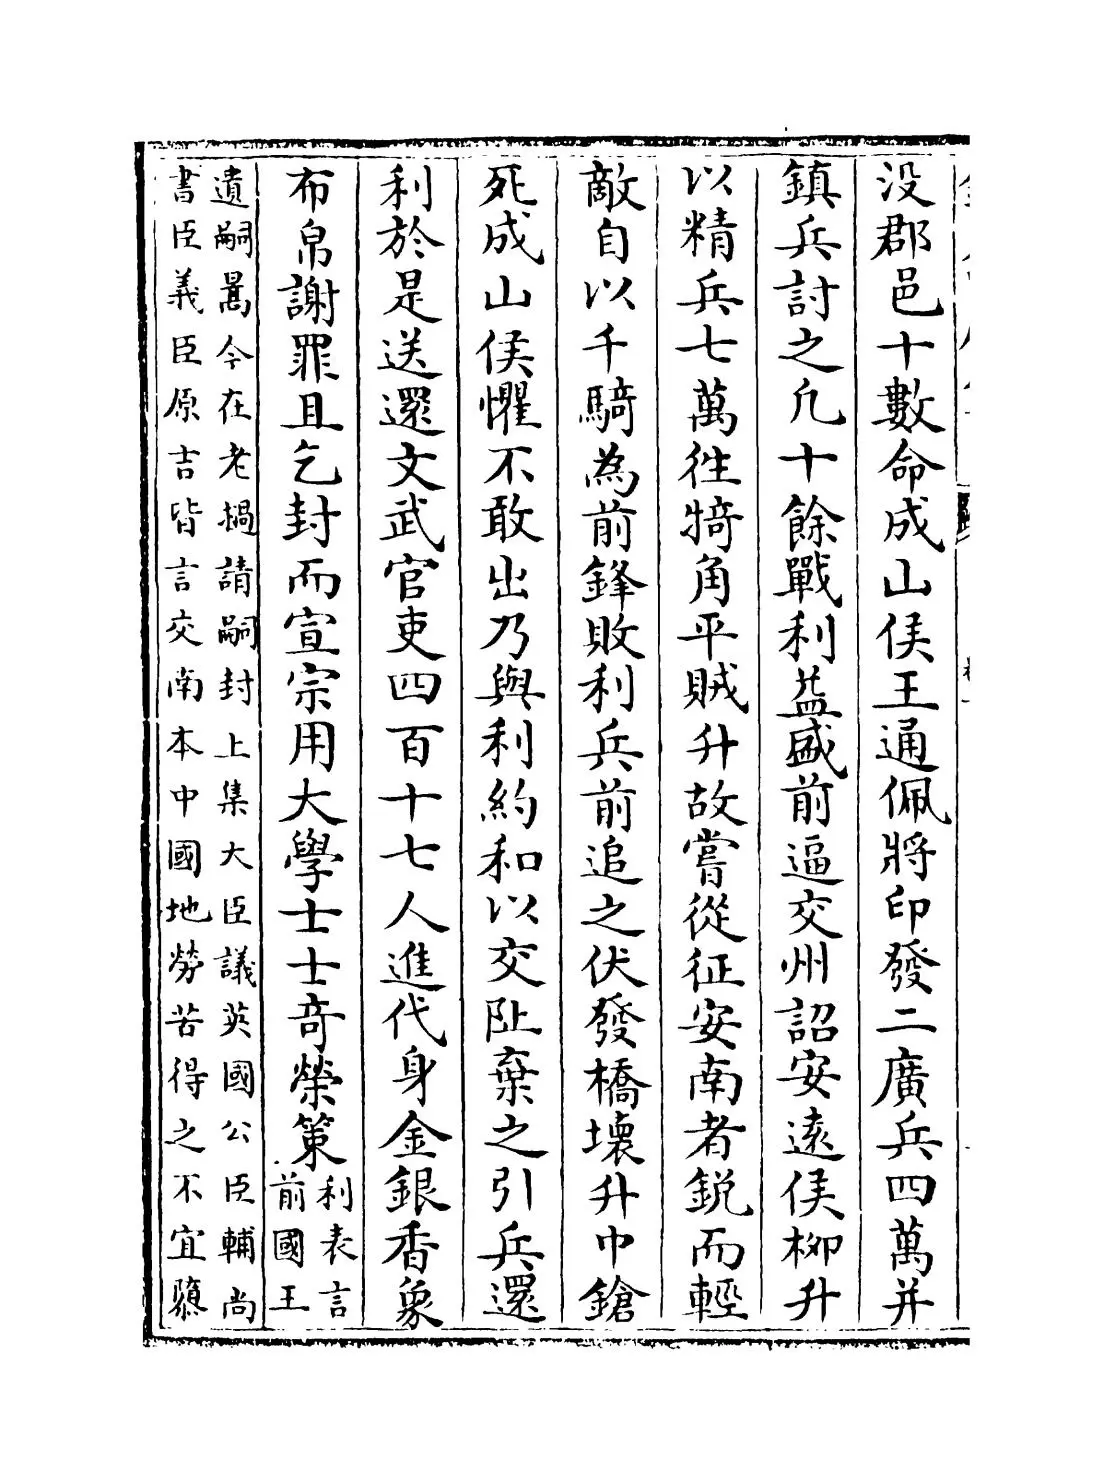 没郡邑十數命成山侯王通佩將印發二廣兵四萬并
鎮兵討之凡十餘戰利益盛前逼交州詔安遠侯栁升
以精兵七萬徃犄角平賊升故嘗從征安南者鋭而輕
敵自以千騎為前鋒敗利兵前追之伏發橋壞升中鎗
死成山侯懼不敢出乃與利約和以交阯棄之引兵還
利於是送還文武官吏四百十七人進代身金銀香象
布帛謝罪且乞封而宣宗用大學士士奇榮策
利表言
前國王
遺嗣暠今在老撾請嗣封上集大臣議英國公臣輔尚
書臣義臣原吉皆言交南本中國地勞苦得之不宜隳